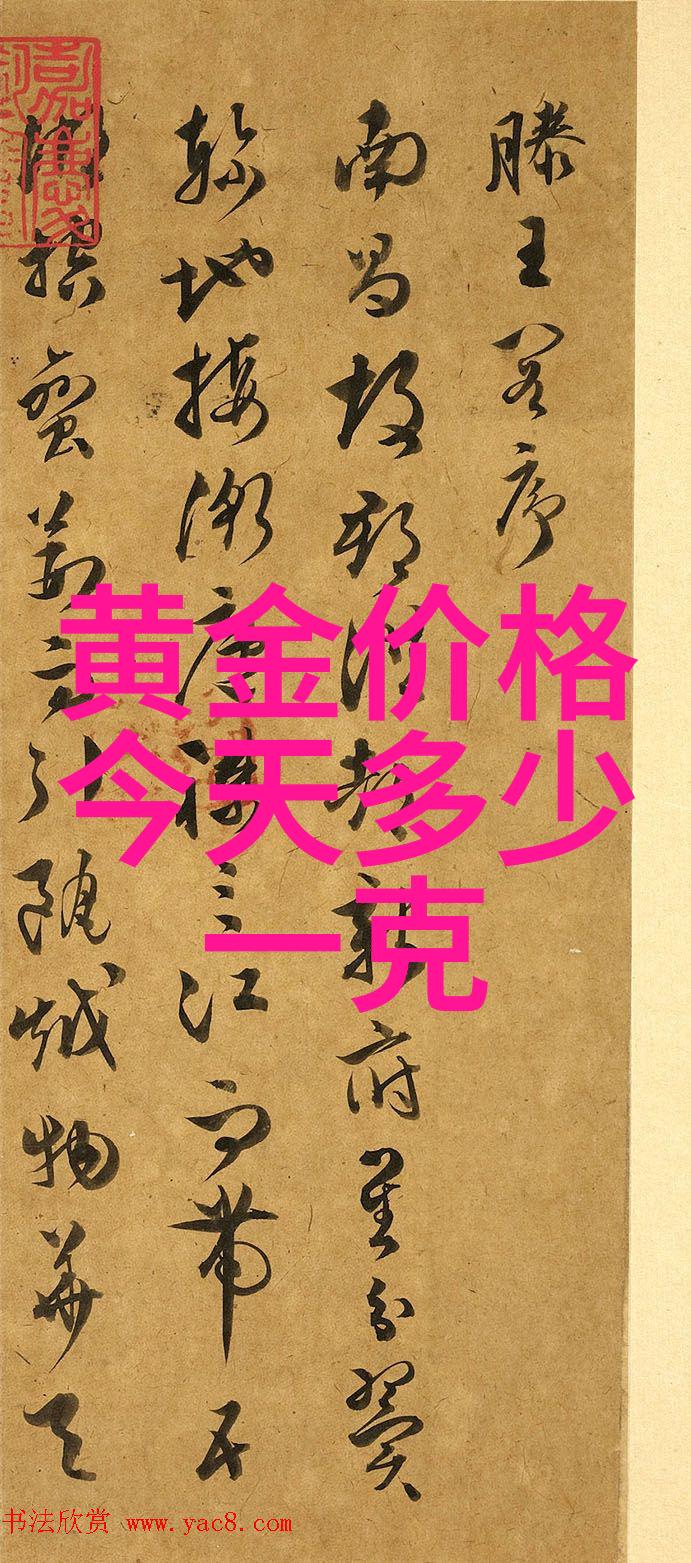 滕王閣序
南昌故郡洪都新府星分翼
軫地接衡廬襟三江而帶五
控蠻荊而引甌越物華天
黄金价格
今天多少
一克
书法欣赏 www.yac8.com